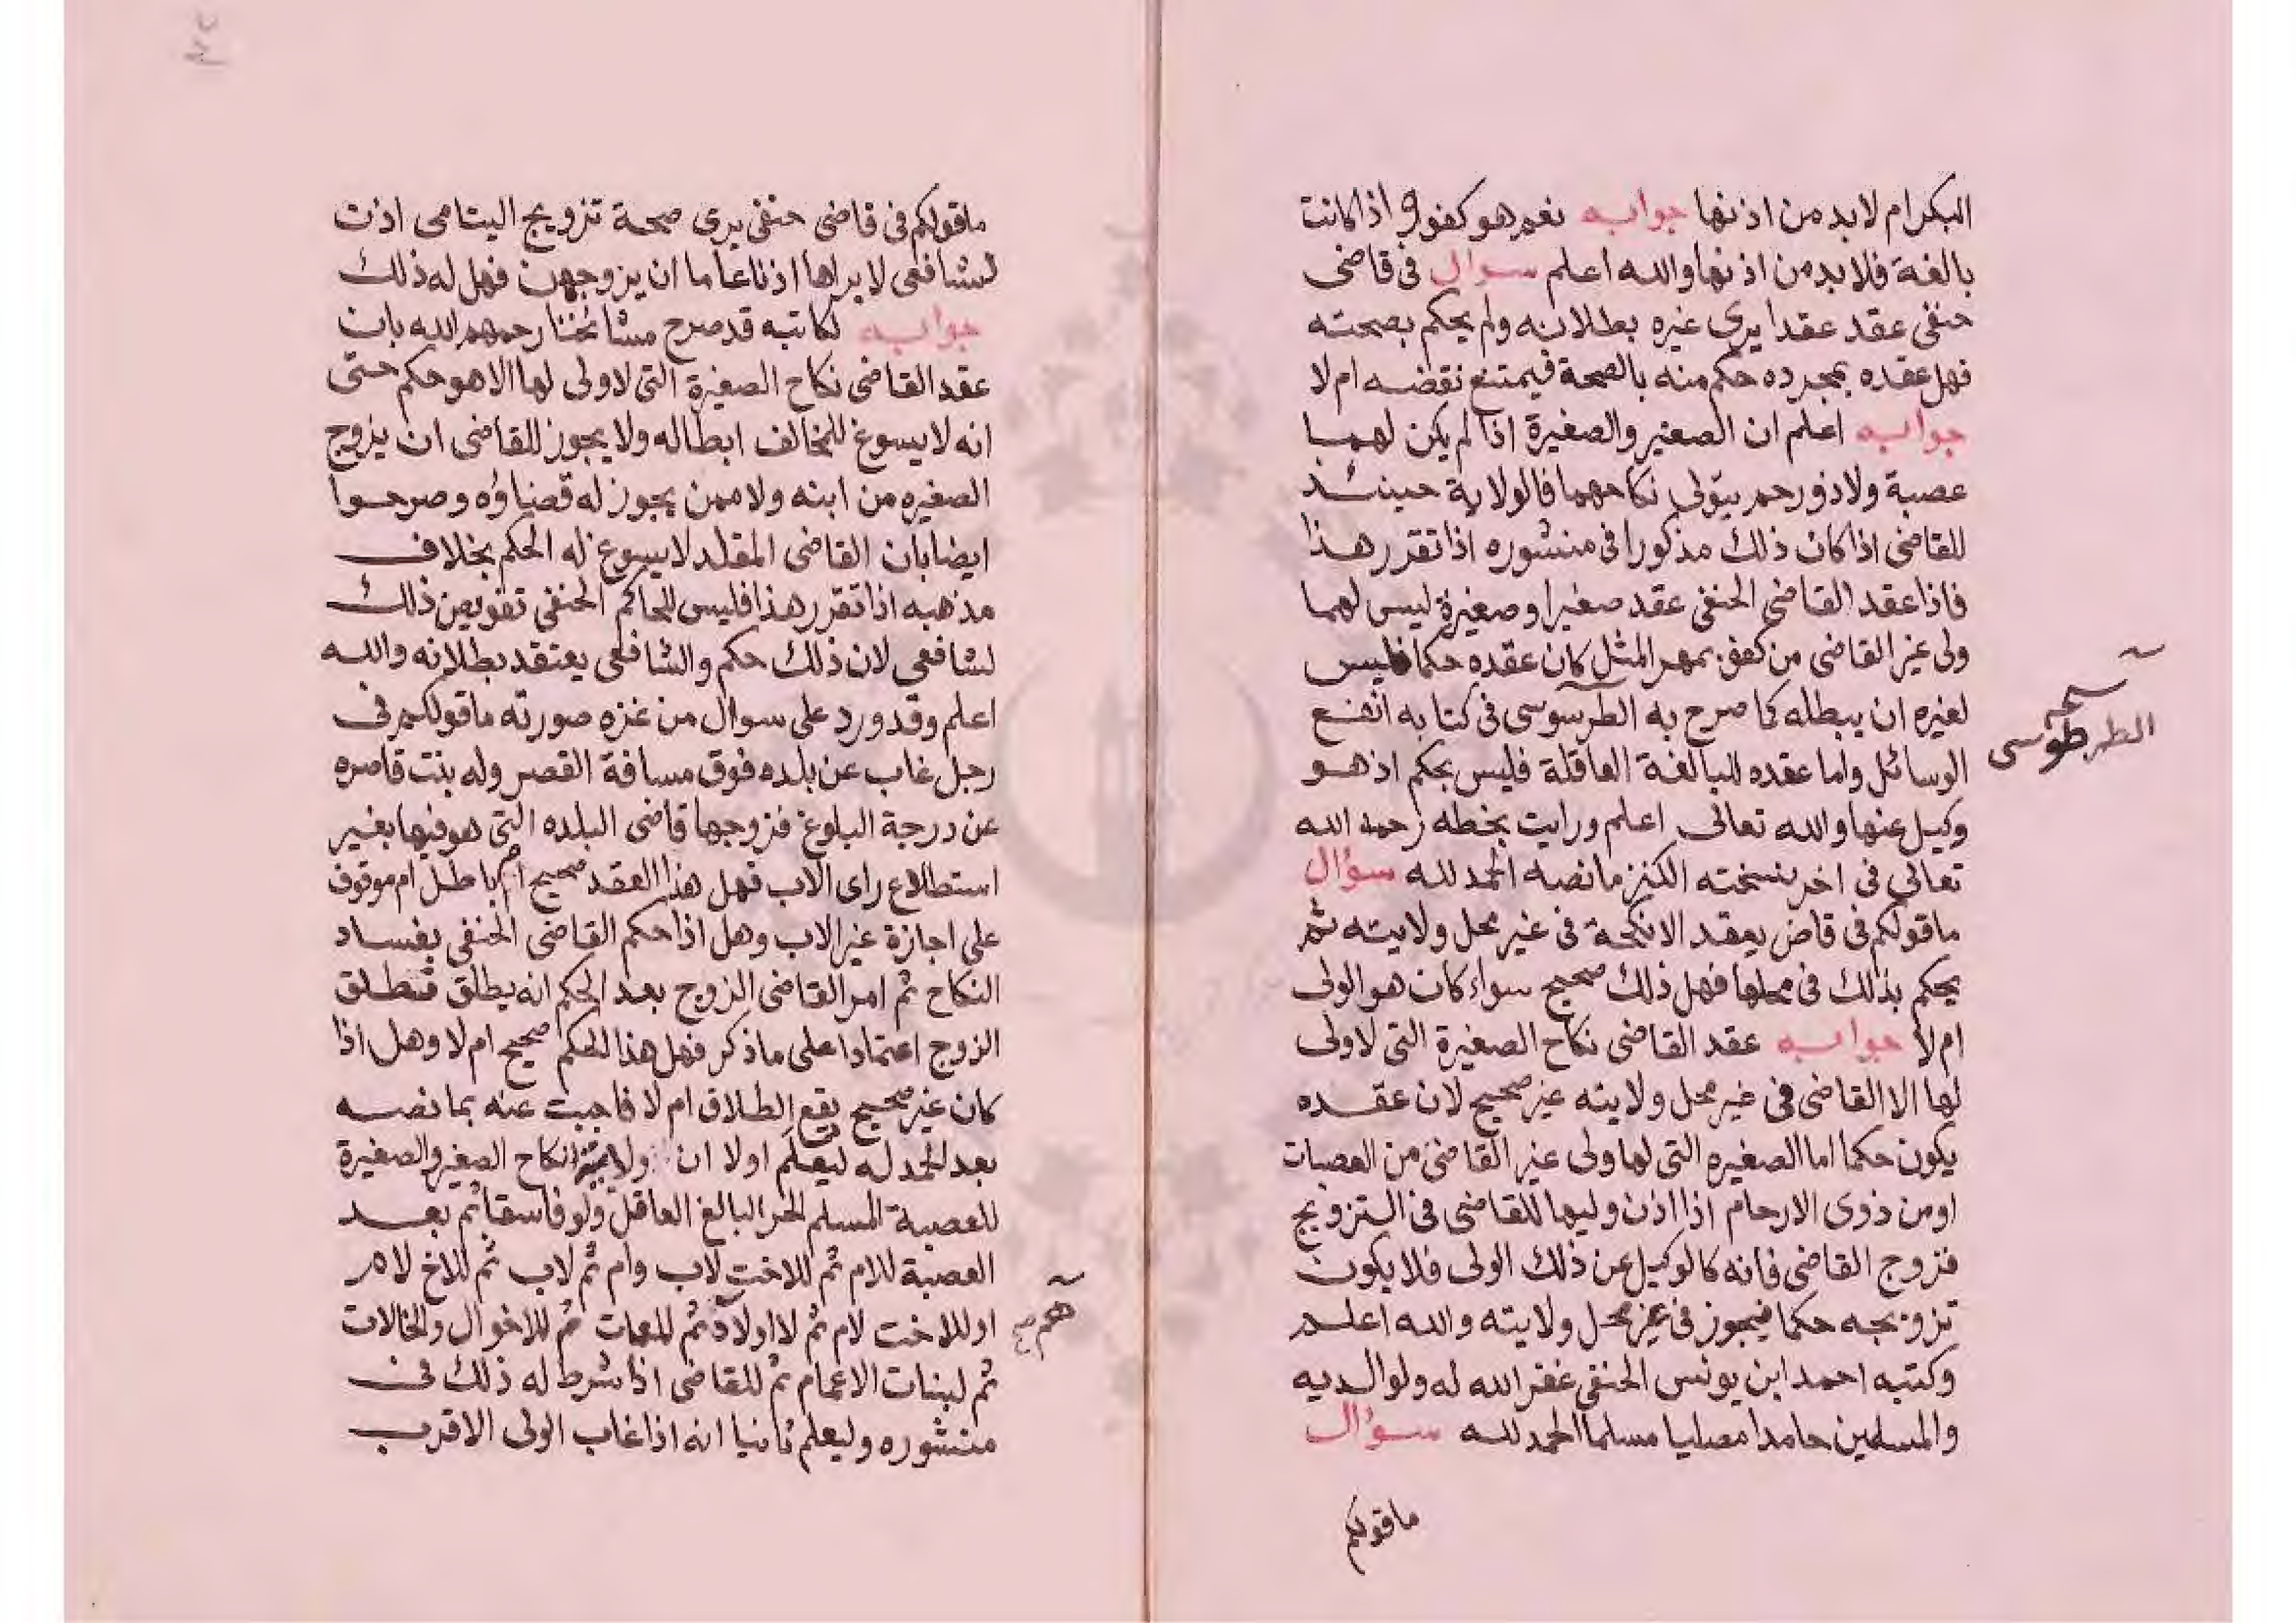 البكر ام لا بد من اذنها جوابه نعم هو كفؤ واذا كانت
بالغة فلا بد من اذنها والله اعلم سوال في قاضى
حنفى عقد عقدا يرى غيره بطلانه ولم يحكم بصحته
فهل عقده بمجرده حكم منه بالصحة فيمتنع نقضه ام لا
جوابه اعلم ان الصغير والصغيرة اذا لم يكن لهما
عصبة ولا ذو رحم يتولى نكاحهما فالولاية حينئذ
للقاضى اذا كان ذلك مذكورا فى منشوره اذا تقرر هذا
فاذا عقد القاضى الحنفى عقد صغير او صغيرة ليس لهما
ولى غير القاضى من كفؤ بمهر المثل كان عقده حكما فليس
لغيره ان يبطله كما صرح به الطرسوسى فى كتابه انفع
الوسائل واما عقده للبالغة العاقلة فليس بحكم اذ هو
وكيل عنها والله تعالى اعلم ورايت بخطه رحمه الله
تعالى فى اخر نسخته الكنز ما نصه الحمد لله سؤال
ما قولكم فى قاض يعقد الانكحة فى غير محل ولايته ثم
يحكم بذلك فى محلها فهل ذلك صحيح سواء كان هو الولى
ام لا جوابه عقد القاضى نكاح الصغيرة التى لا ولى
لها الا القاضى فى غير محل ولايته غير صحيح لان عقده
يكون حكما اما الصغيره التى لها ولى غير القاضى من العصبات
او من ذوى الارحام اذا اذن وليها للقاضى فى التزويج
فزوج القاضى فانه كالوكيل عن ذلك الولى فلا يكون
تزويجه حكما فيجوز فى غير محل ولايته والله اعلم
وكتبه احمد ابن يونس الحنفى غفر الله له ولوالديه
والمسلمين حامدا مصليا مسلما الحمد لله سؤال
ما قولكم
الطرطوسى
ما قولكم فى قاضى حنفى يرى صحة تزويج اليتامى اذن
لشافعى لا يراها اذنا عاما ان يزوجهن فهل له ذلك
جوابه لكاتبه قد صرح مشائخنا رحمهم الله بان
عقد القاضى نكاح الصغيرة التى لا ولى لها الا هو حكم حتى
انه لا يسوغ للمخالف ابطاله ولا يجوز للقاضى ان يزوج
الصغيره من ابنه ولا ممن يجوز له قضاؤه وصرحوا
ايضا بان القاضى المقلد لا يسوغ له الحكم بخلاف
مذهبه اذا تقرر هذا فليس للحاكم الحنفى تفويض ذلك
لشافعى لان ذلك حكم والشافعى يعتقد بطلانه والله
اعلم وقد ورد على سوال من غزه صورته ما قولكم فى
رجل غاب عن بلده فوق مسافة القصر وله بنت قاصره
عن درجة البلوغ فزوجها قاضى البلده التى هو فيها بغير
استطلاع راى الاب فهل هذا العقد صحيح ام باطل ام موقوف
على اجازة غير الاب وهل اذا حكم القاضى الحنفى بفساد
النكاح ثم امر القاضى الزوج بعد الحكم انه يطلق فطلق
الزوج اعتمادا على ما ذكر فهل هذا الحكم صحيح ام لا وهل اذا
كان غير صحيح يقع الطلاق ام لا فاجبت عنه بما نصه
بعد الحمد له ليعلم اولا ان ولاية انكاح الصغير والصغيرة
للعصبة المسلم الحر البالغ العاقل ولو فاسقا ثم بعد
العصبة للام ثم للاخت لاب وام ثم لاب ثم للاخ لام
او للاخت لام ثم لاولاد ثم للعمات ثم للاخوال والخالات
ثم لبنات الاعمام ثم للقاضى اذا شرط له ذلك فى
منشوره وليعلم ثانيا انه اذا غاب الولى الاقرب
هم صح